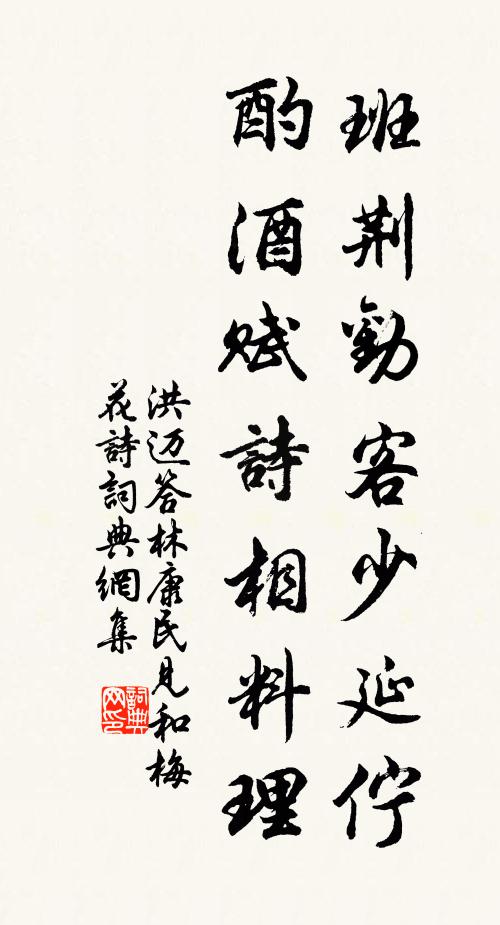 班荆勸客少延佇
酌酒賦詩相料理
洪迈答林康民見和梅
花詩詞典網集
詞典
网印